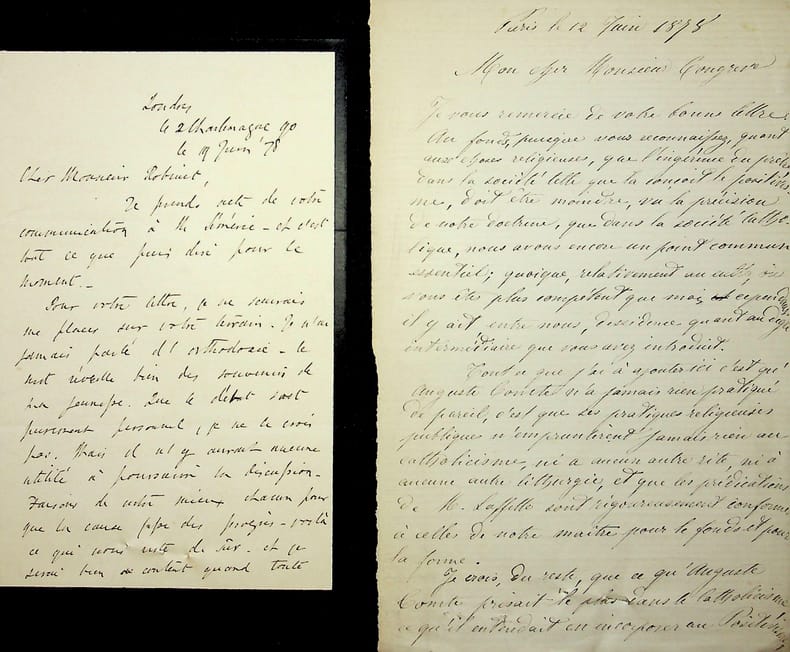 Londres
le 2 Charlemagne 90
le 19 Juin 78
Cher Monsieur Robinet,
Je prends acte de votre
communication à M. Sémérie – et c'est
tout ce que puis dire pour le
moment. –
Pour votre lettre, je ne saurais
me placer sur votre terrain. Je n'ai
jamais parlé d'orthodoxie – le
mot réveille bien des souvenirs de
ma jeunesse. Que le débat soit
purement personnel, je ne le crois
pas. Mais il n'y aurait aucune
utilité à poursuivre la discussion.
Faisons de notre mieux chacun pour
que la cause fasse des progrès – voilà
ce qui nous reste de sûr. et je
serai bien content quand toute
Paris le 12 Juin 1878
Mon cher Monsieur Congreve
Je vous remercie de votre bonne lettre.
Au fond, puisque vous reconnaissez, quant
aux choses religieuses, que l'ingérence du prêtre
dans la société telle que la conçoit le positivis-
me, doit être moindre, vu la précision
de notre doctrine, que dans la société catho-
lique, nous avons encore un point commun
essentiel; quoique, relativement au culte, où
vous êtes plus compétent que moi, cependant
il y ait entre nous, dissidence quant au
intermédiaire que vous avez introduit.
Tout ce que j'ai à ajouter ici c'est qu'
Auguste Comte n'a jamais rien pratiqué
de pareil, c'est que ses pratiques religieuses
publiques n'empruntèrent jamais rien au
catholicisme, ni a aucun autre rite, ni à
aucune autre lithurgie, et que les prédications
de M. Laffitte sont rigoureusement conformes
à celles de notre maître pour le fonds et pour
la forme.
Je crois, du reste, que ce qu'Auguste
Comte prisait le plus dans le catholicisme
ce qu'il entendait en incorporer au Positivisme